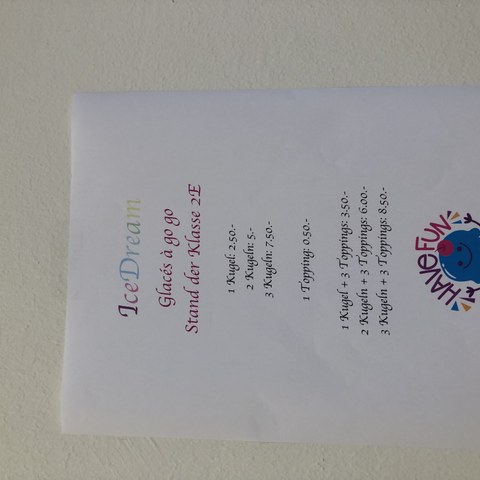 IceDream
Glacés à go go
Stand der Klasse 2E
1 Kugel: 2.50.-
2 Kugeln: 5.-
3 Kugeln: 7.50.-
1 Topping: 0.50.-
1 Kugel + 3 Toppings: 3.50.-
2 Kugeln + 3 Toppings: 6.00.-
3 Kugeln + 3 Toppings: 8.50.-
HAVE FUN